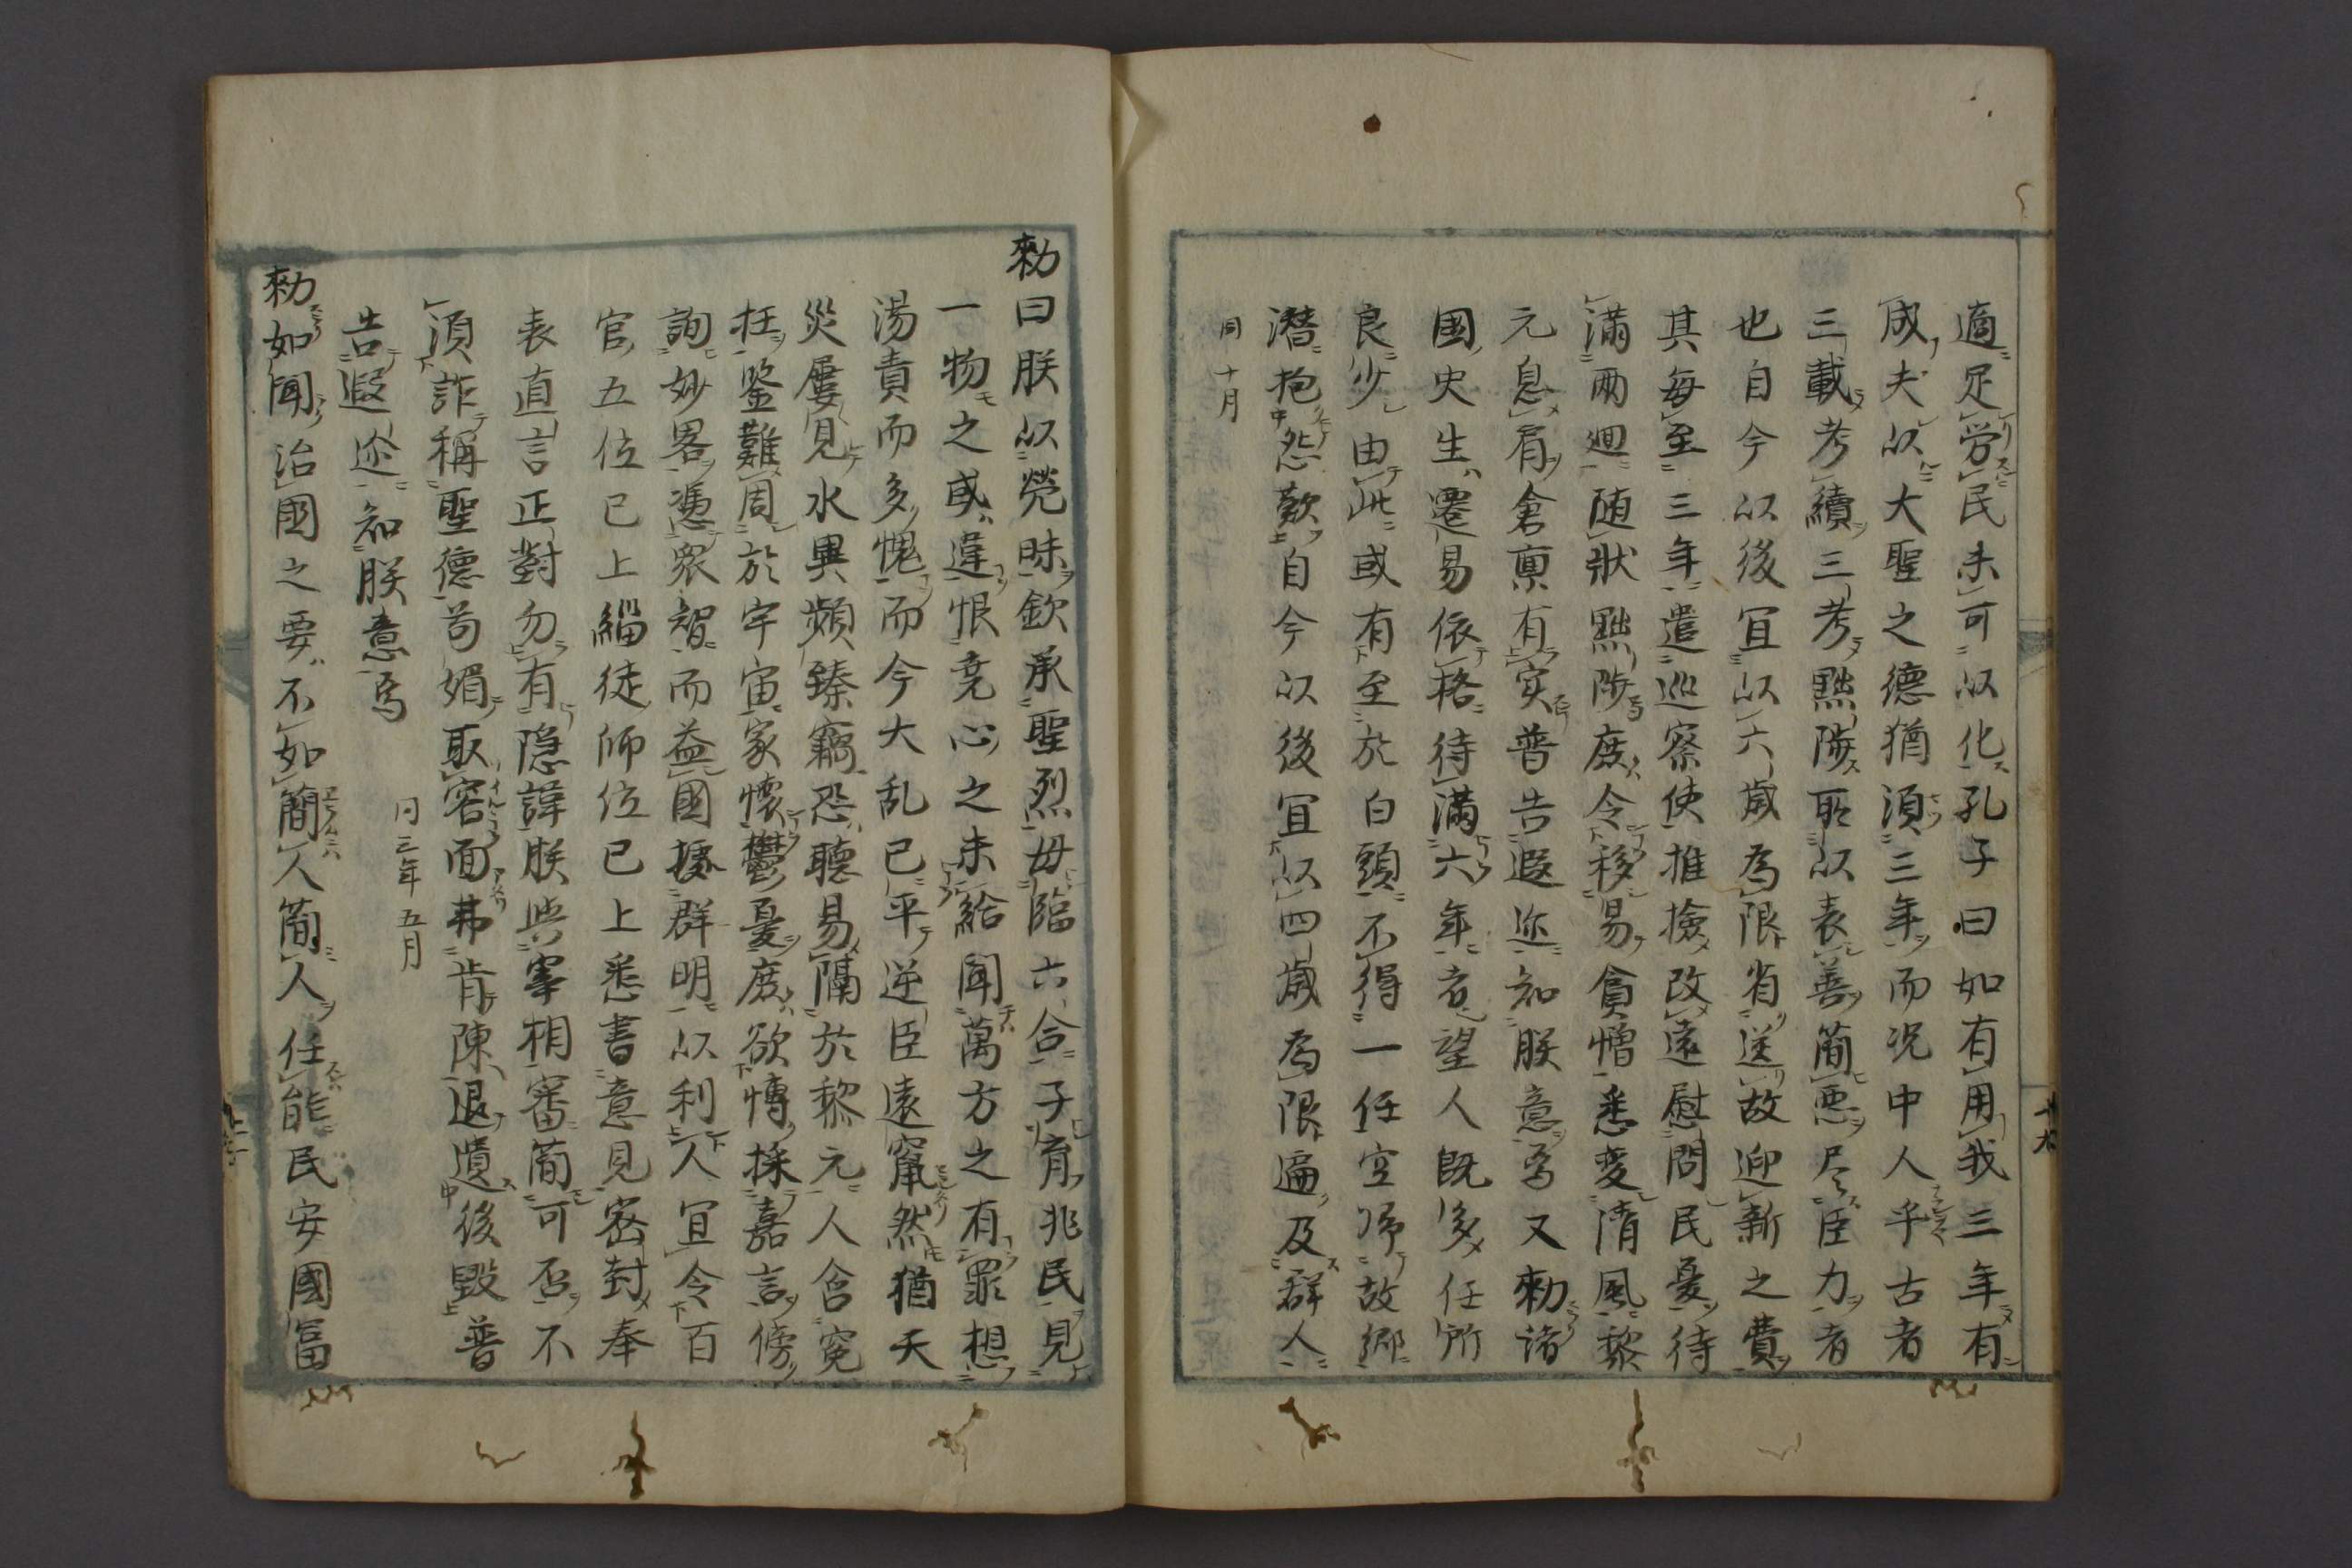 適足労民未可以化孔子曰如有用我三年有
成夫以大聖之德猶湏三年而况中人乎古者
三載考績三考黜陟所以表善簡悪尽臣力者
也自今以後冝以六歳為限省送故迎新之費
其毎至三年遣巡察使推撿政迹慰問民憂待
満両廻随状黜陟庶令移易貪憎悉変清風黎
元息肩倉禀有実普告遐迩知朕意焉又勅諸
國史生遷易依格待満六年者望人既多任所
良少由此或有至於白頭不得一任空帰故郷
潜抱怨歎自今以後冝以四歳為限遍及群人
同十月
勅曰朕以煢昧欽承聖烈毋臨六合子育兆民見
一物之或違恨尭心之未給聞萬方之有罪想
湯責而多愧而今大乱已平逆臣遠竄然猶天
災屢見水異頻臻竊恐聴易隔於黎元人含寃
枉鑒難周於宇宙家懐鬱憂庶欲愽採嘉言傍
詢妙畧憑衆智而益國據群明以利人冝令百
官五位已上緇徒師位已上悉書意見密封奉
表直言正對勿有隠諱朕與宰相審簡可否不
湏詐稱聖德苟媚取容面弗肯陳退遺後毀普
告遐迩知朕意焉
同三年五月
勅如聞治國之要不如簡人簡人任能民安國富